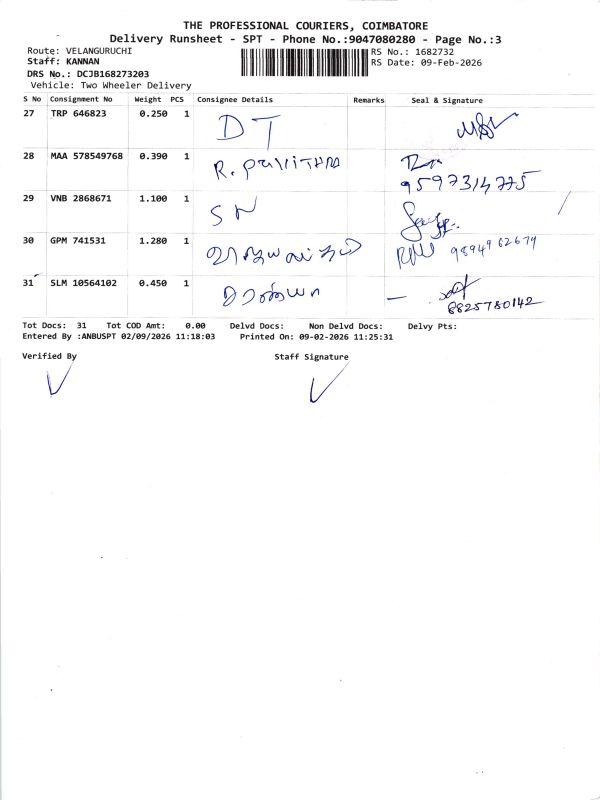 THE PROFESSIONAL COURIERS, COIMBATORE
Delivery Runsheet - SPT - Phone No.:9047080280 - Page No.:3
Route: VELANGURUCHI
RS No.: 1682732
Staff: KANNAN
RS Date: 09-Feb-2026
DRS No.: DCJB168273203
Vehicle: Two Wheeler Delivery
S No Consignment No Weight PCS Consignee Details Remarks Seal & Signature
27 TRP 646823 0.250 1 DT
28 MAA 578549768 0.390 1 R. PAVITHRA
9597314775
29 VNB 2868671 1.100 1 SN
30 GPM 741531 1.280 1 9894962679
31 SLM 10564102 0.450 1 சரண்யா
8825780142
Tot Docs: 31 Tot COD Amt: 0.00 Delvd Docs: Non Delvd Docs: Delvy Pts:
Entered By :ANBUSPT 02/09/2026 11:18:03 Printed On: 09-02-2026 11:25:31
Verified By Staff Signature